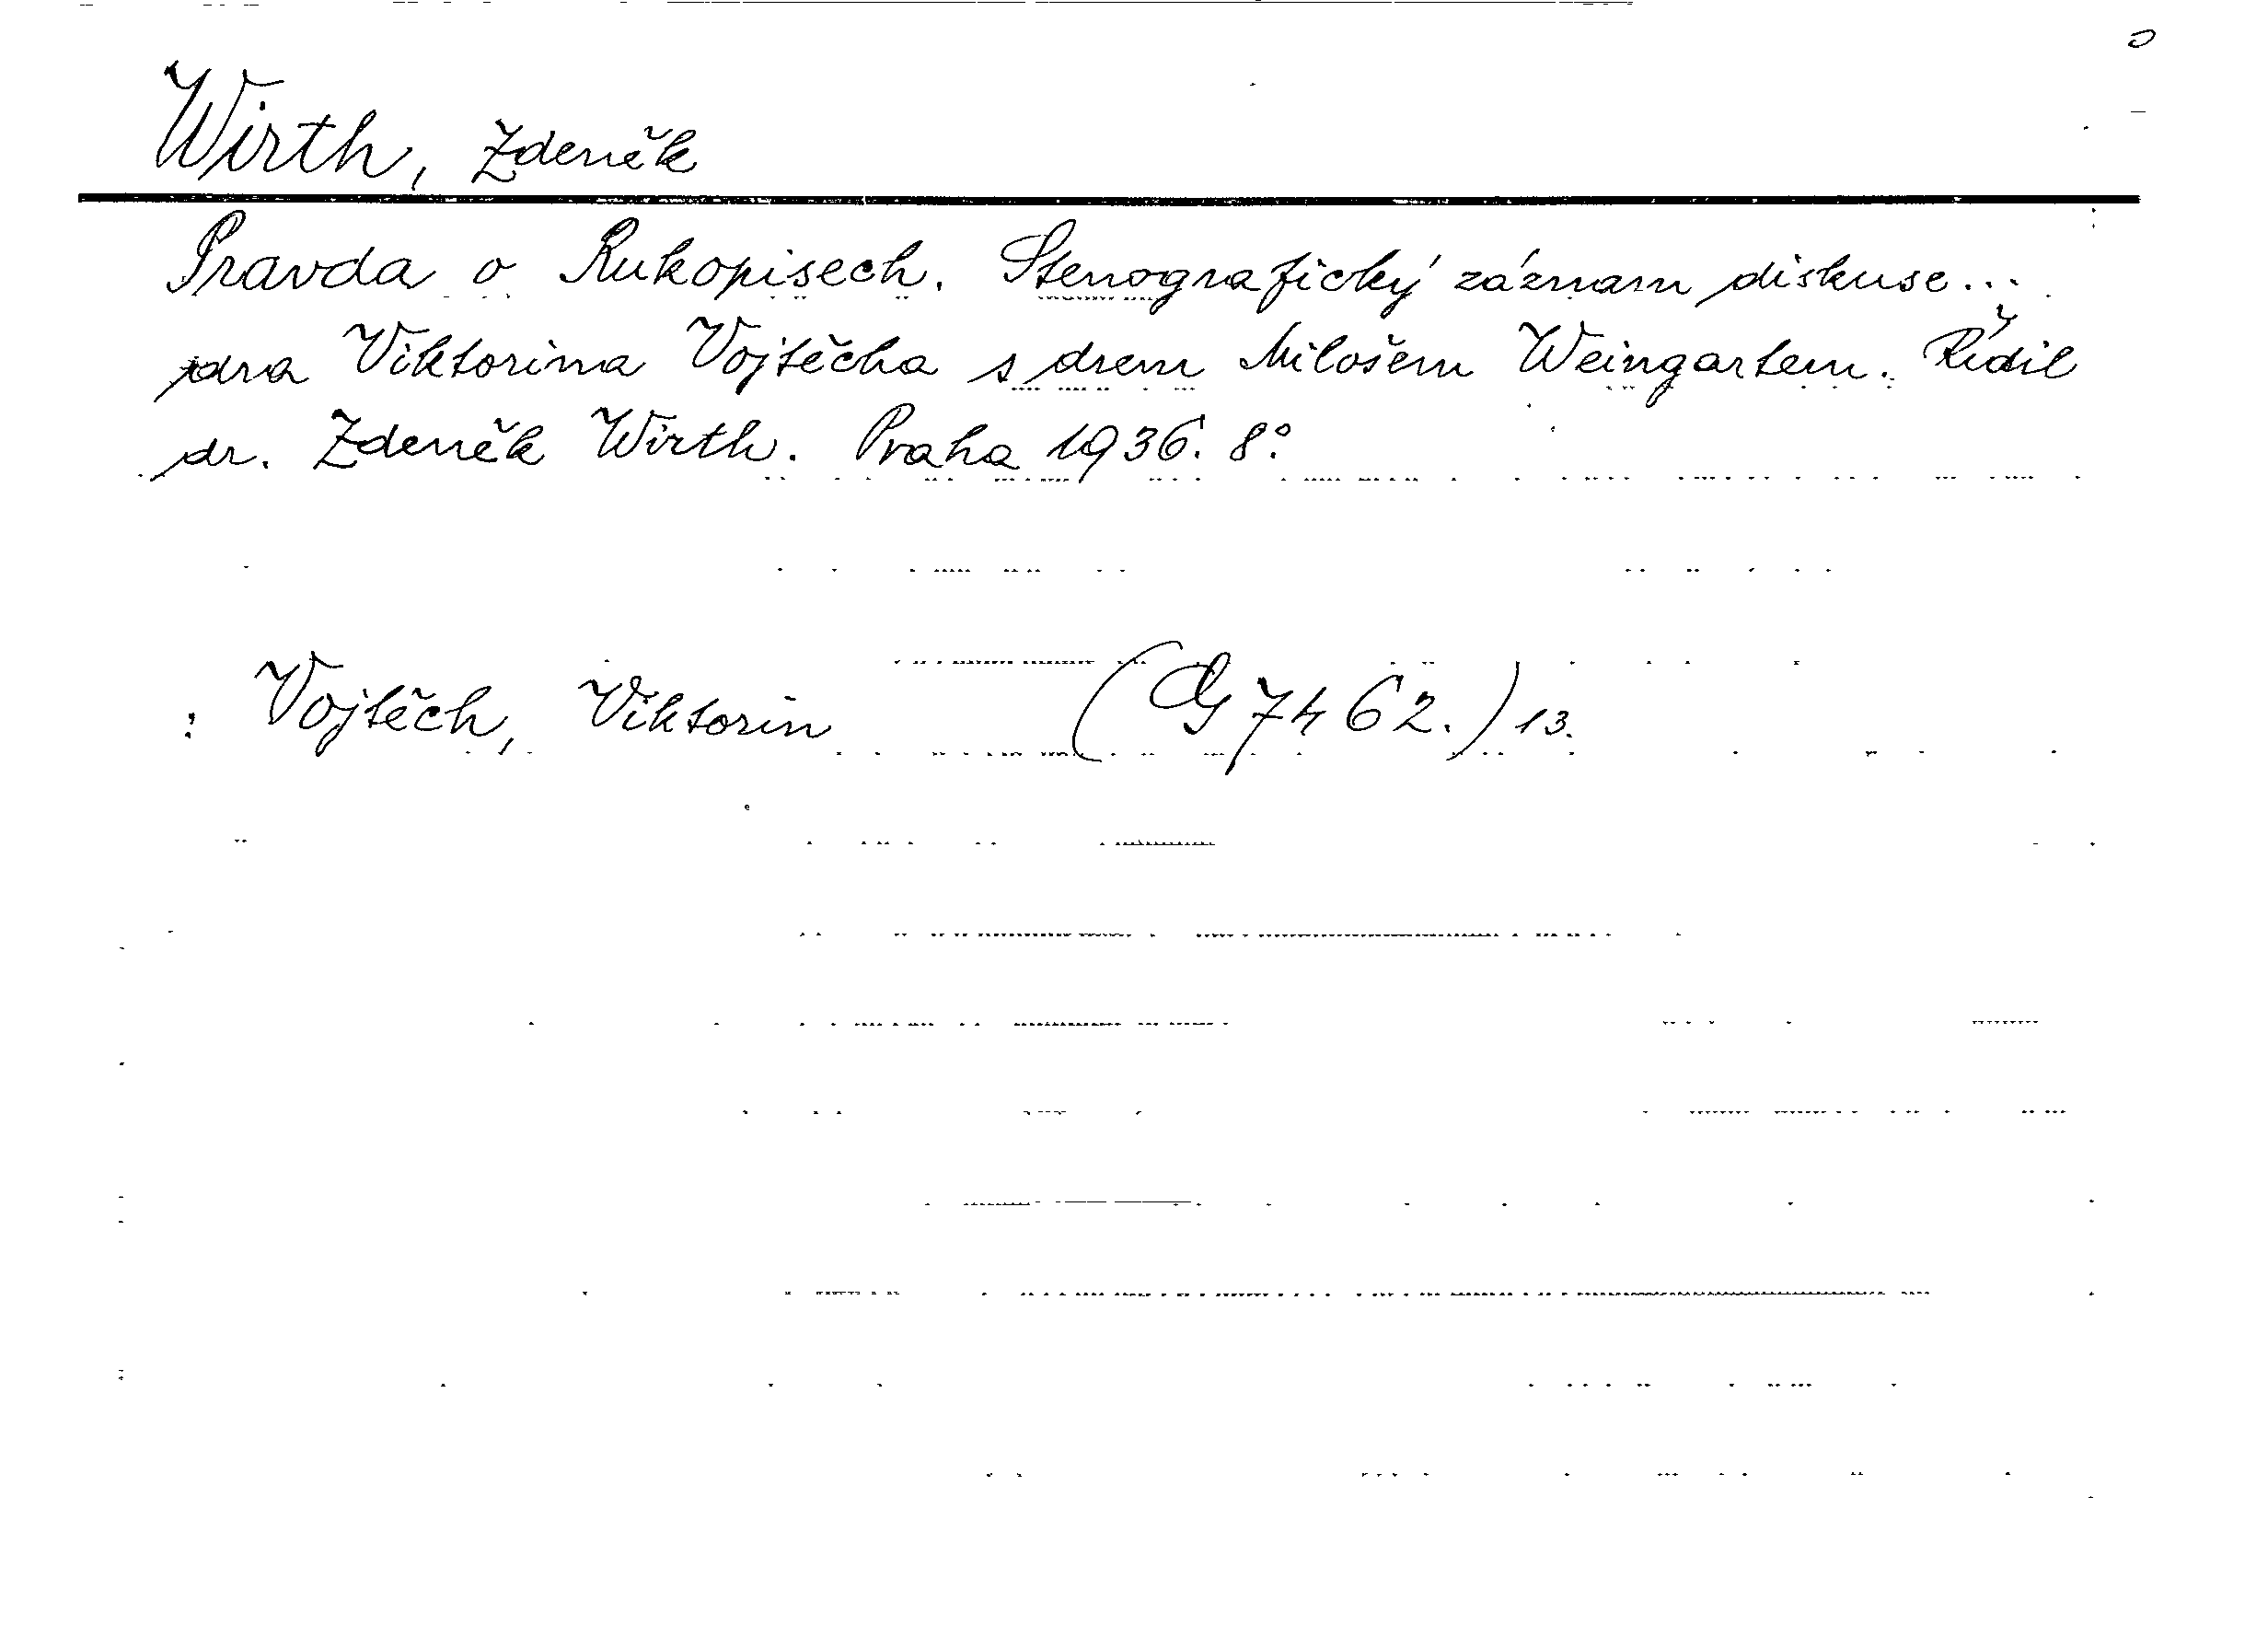 Wirth, Zdeněk
Pravda o Rukopisech. Stenografický záznam diskuse...
dra Viktorina Vojtěcha s drem Milošem Weingartem. Řídil
dr. Zdeněk Wirth. Praha 1936. 8°.
: Vojtěch, Viktorin (Cg 7462.) 13.